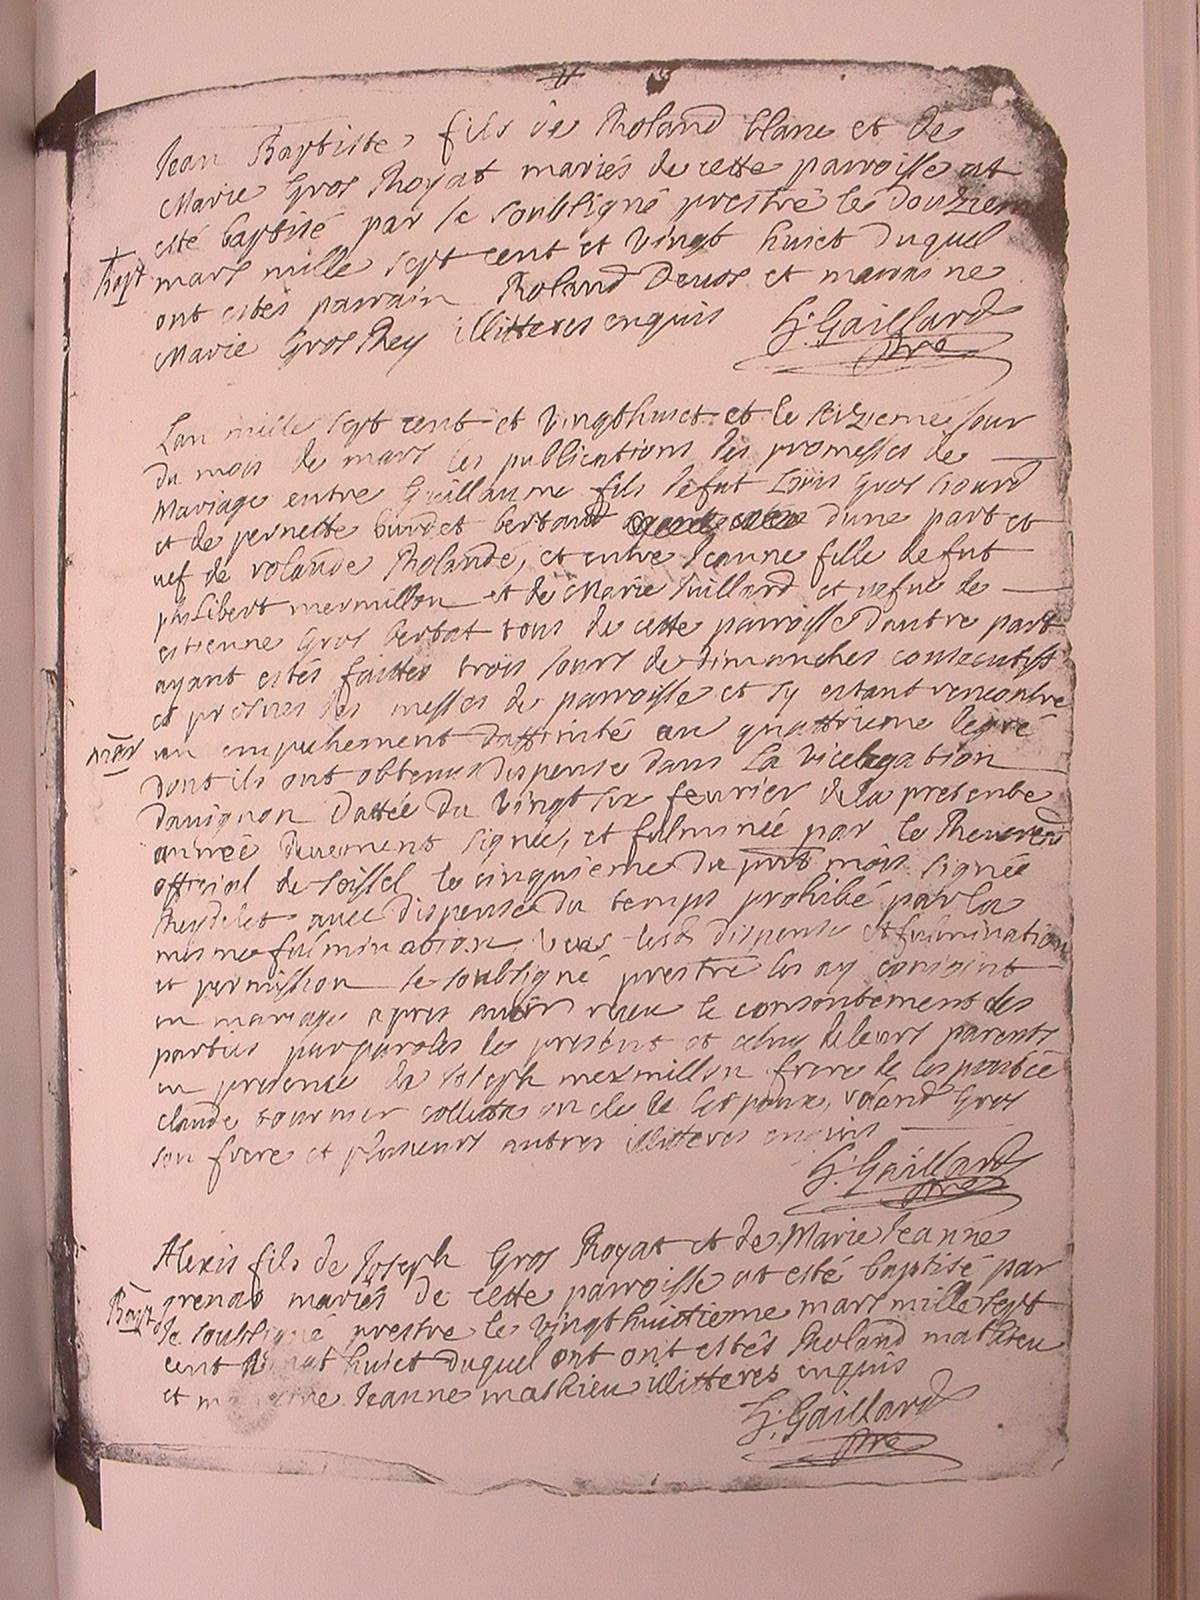 Jean Baptiste fils de Rholand blanc et de
Marie Gros Rhoyat mariés de cette parroisse at
esté baptisé par le soubsigné prestre le douzieme
Bapt
mars mille sept cent et vingt huict duquel
ont estes parrain Rholand Deuos et marraine
Marie Gros Rhey illitteres enquis
h: Gaillard
pre
Lan mille sept cent et vingthuict et le seizieme jour
du mois de mars les publications des promesses de
Mariage entre Guillaume fils de fut Loüis Gros
et de pernette burdet bertand dune part et
uef de rolande Rholande, et entre Jeanne fille de fut
philibert mermillon et de Marie Juillard et uefue de
estienne Gros bertat tous de cette parroisse dautre part
ayant estés faittes trois jours de dimanches consecutifs
et prosnes des messes de parroisse et sy estant rencontre
mar
un empechement daffinité au quattrieme degré
dont ils ont obtenus dispense dans La vicelegation
dauignon dattée du vingt six feurier de la presente
année deuement signée, et fulminée par le Reuerend
official de seissel le cinquieme du prnt mois signée
Reydelet auec dispense du temps prohibé par la
mesme fulmination, veus lesd dispense et fulmination
et permission le soubsigné prestre les ay conjoint
en mariage apres auoir receu le consentement des
parties par paroles de present et celuy de leurs parents
en presence de Joseph mermillon frere de lespousée
claude tournier oncle de lespoux, roland Gros
son frere et plusieurs autres illitteres enquis
h: Gaillard
pre
Alexis fils de Joseph Gros Rhoyat et de Marie Jeanne
grenad mariés de cette parroisse at esté baptisé par
Bapt
le soubsigné prestre le vingthuictieme mars mille sept
cent vingt huict duquel ont ont estés Rholand mathieu
et marraine Jeanne mathieu illitteres enquis
h: Gaillard
pre